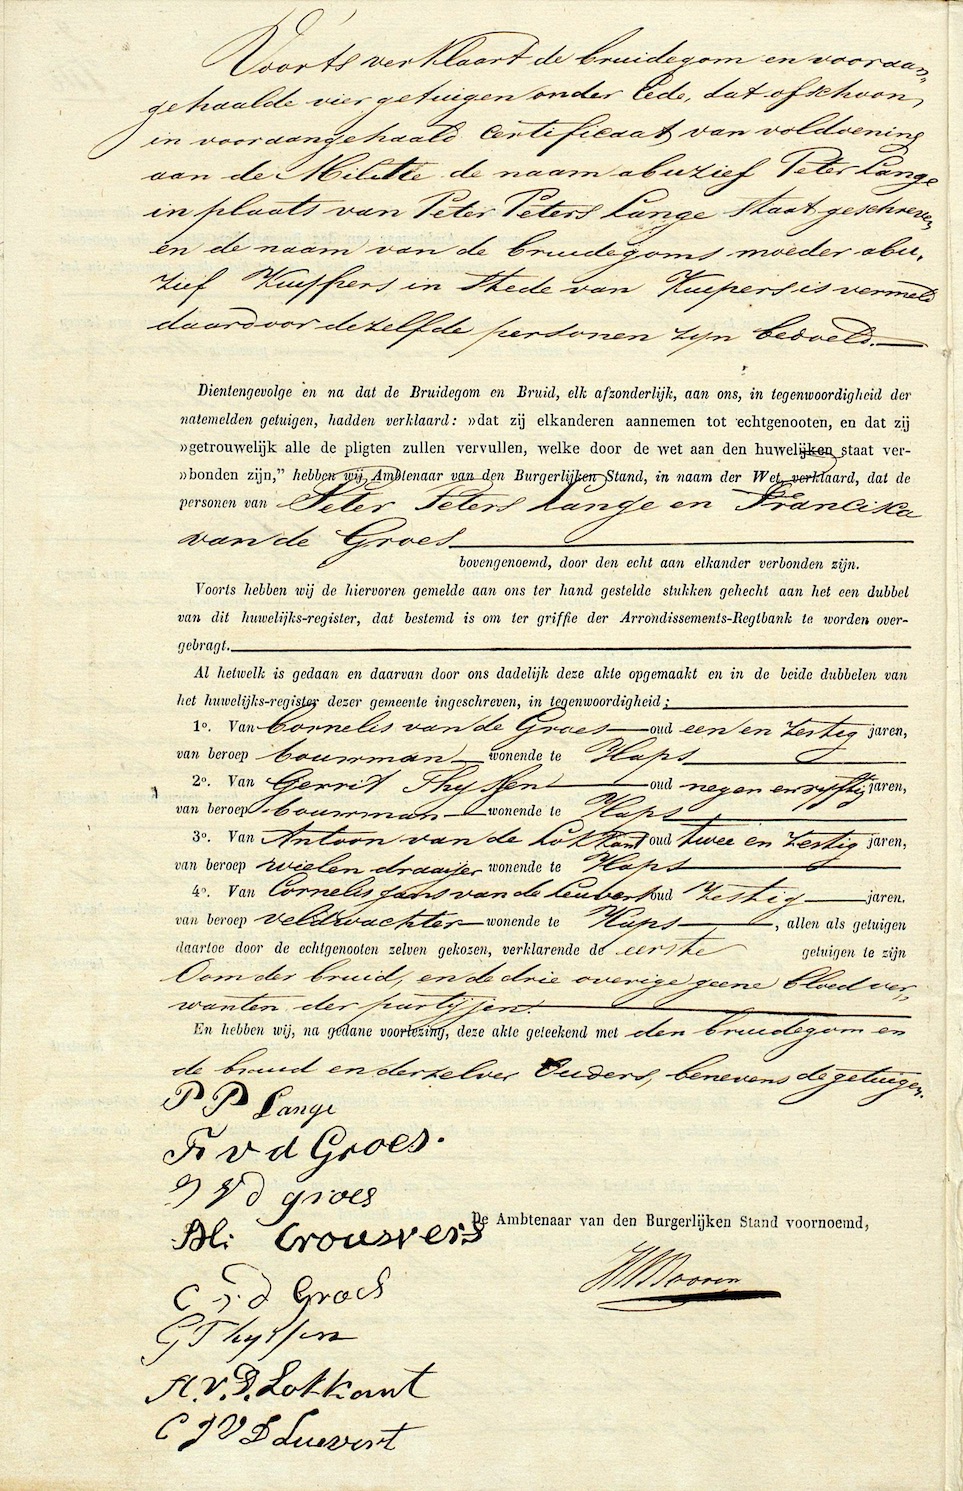 Voorts verklaart de bruidegom en vooraan„
gehaalde vier getuigen onder Eede, dat ofschoon,
in vooraangehaald Certificaat van voldoening
aan de Militie de naam abuzief Peter Lange
in plaats van Peter Peters Lange staat geschreven
en de naam van de bruidegoms moeder abu„
zief Kuijpers in stede van Kuepers is vermeld
daardvoor dezelfde personen zyn bedoeld.
Dientengevolge en na dat de Bruidegom en Bruid, elk afzonderlijk, aan ons, in tegenwoordigheid der
natemelden getuigen, hadden verklaard: »dat zij elkanderen aannemen tot echtgenooten, en dat zij
»getrouwelijk alle de pligten zullen vervullen, welke door de wet aan den huwelijken staat ver-
»bonden zijn,” hebben wij Ambtenaar van den Burgerlijken Stand, in naam der Wet, verklaard, dat de
personen van Peter Peters Lange en Franciska
van de Groes
bovengenoemd, door den echt aan elkander verbonden zijn.
Voorts hebben wij de hiervoren gemelde aan ons ter hand gestelde stukken gehecht aan het een dubbel
van dit huwelijks-register, dat bestemd is om ter griffie der Arrondissements-Regtbank te worden over-
gebragt.
Al hetwelk is gedaan en daarvan door ons dadelijk deze akte opgemaakt en in de beide dubbelen van
het huwelijks-register dezer gemeente ingeschreven, in tegenwoordigheid;
1o. Van Cornelis van de Groes oud een en zestig jaren,
van beroep bouwman wonende te Haps
2o. Van Gerrit Thyssen oud negen en vyftig jaren,
van beroep bouwman wonende te Haps
3o. Van Antoon van de Lokkant oud twee en zestig jaren,
van beroep wielendraaijer wonende te Haps
4o. Van Cornelis Jans van de Leuvert oud Zestig jaren.
van beroep veldwachter wonende te Haps, allen als getuigen
daartoe door de echtgenooten zelven gekozen, verklarende de eerste getuigen te zijn
Oom der bruid, en de drie overige geene bloedver„
wanten der partijen.
En hebben wij, na gedane voorlezing, deze akte geteekend met den bruidegom en
de bruid en derzelver Ouders, benevens de getuigen.
P P Lange
Fr v d Groes.
v d groes
Crousvers
De Ambtenaar van den Burgerlijken Stand voornoemd,
C v d Groes
G Thyssen
A. v. D. Lokkant
C J V D Luevert